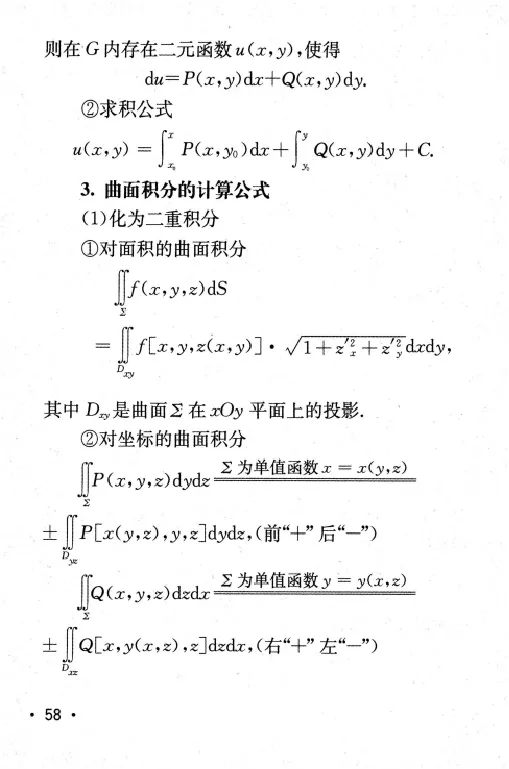 则在 G 内存在二元函数 u(x,y),使得
du=P(x,y)dx+Q(x,y)dy.
②求积公式
u(x,y) = ∫_{x₀}^{x} P(x,y₀)dx + ∫_{y₀}^{y} Q(x,y)dy + C.
3. 曲面积分的计算公式
(1)化为二重积分
①对面积的曲面积分
∬_Σ f(x,y,z)dS
= ∬_{D_{xy}} f[x,y,z(x,y)] · √(1+z′²ₓ+z′²_y) dxdy,
其中 D_{xy} 是曲面 Σ 在 xOy 平面上的投影.
②对坐标的曲面积分
∬_Σ P(x,y,z)dydz Σ 为单值函数 x = x(y,z)
± ∬_{D_{yz}} P[x(y,z),y,z]dydz,(前“+”后“—”)
∬_Σ Q(x,y,z)dzdx Σ 为单值函数 y = y(x,z)
± ∬_{D_{xz}} Q[x,y(x,z),z]dzdx,(右“+”左“—”)
· 58 ·